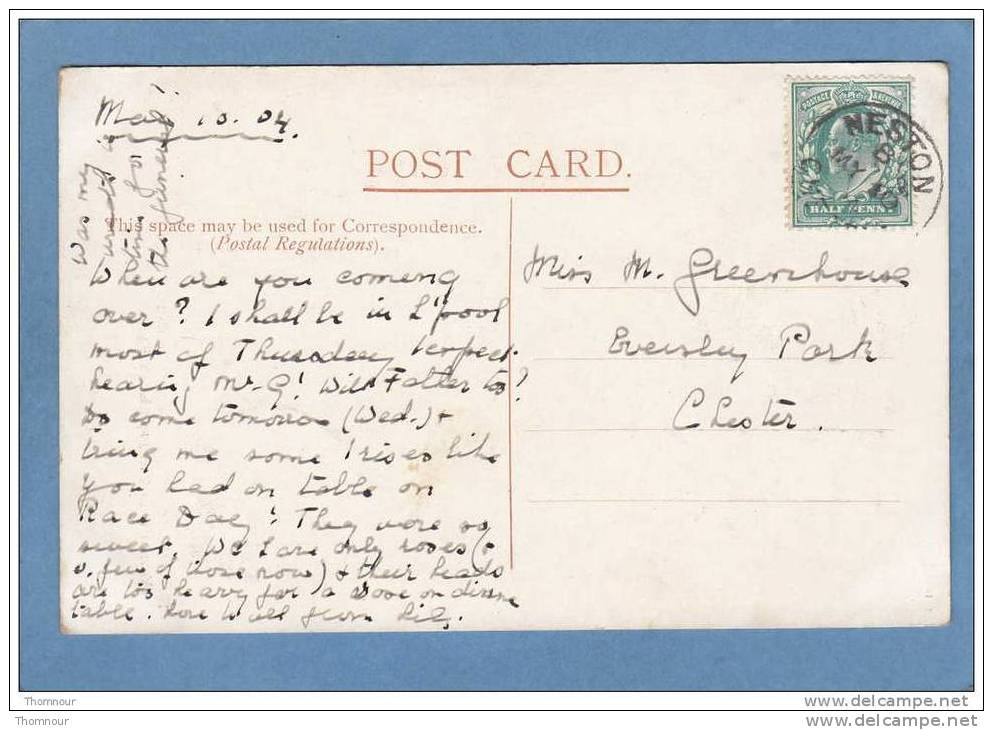 May 10. 04.
POST CARD.
This space may be used for Correspondence.
(Postal Regulations).
NESTON
MY 10
POSTAGE REVENUE
HALFPENNY
Was my
in time for
When are you coming
over? I shall be in L'pool
most of Thursday & expect
hearing Mr. G! Will Father too?
Do come tomorrow (Wed.) &
bring me some Irises like
you had on table on
Race Day! They were so
sweet. We have only roses (&
v. few of those now) & their heads
are too heavy for a vase on dinner
table. Love to all from Lil.
Miss M. Greenhouse
Eversley Park
Chester.
Thomnour
Thomnour
www.delcampe.net
www.delcampe.net